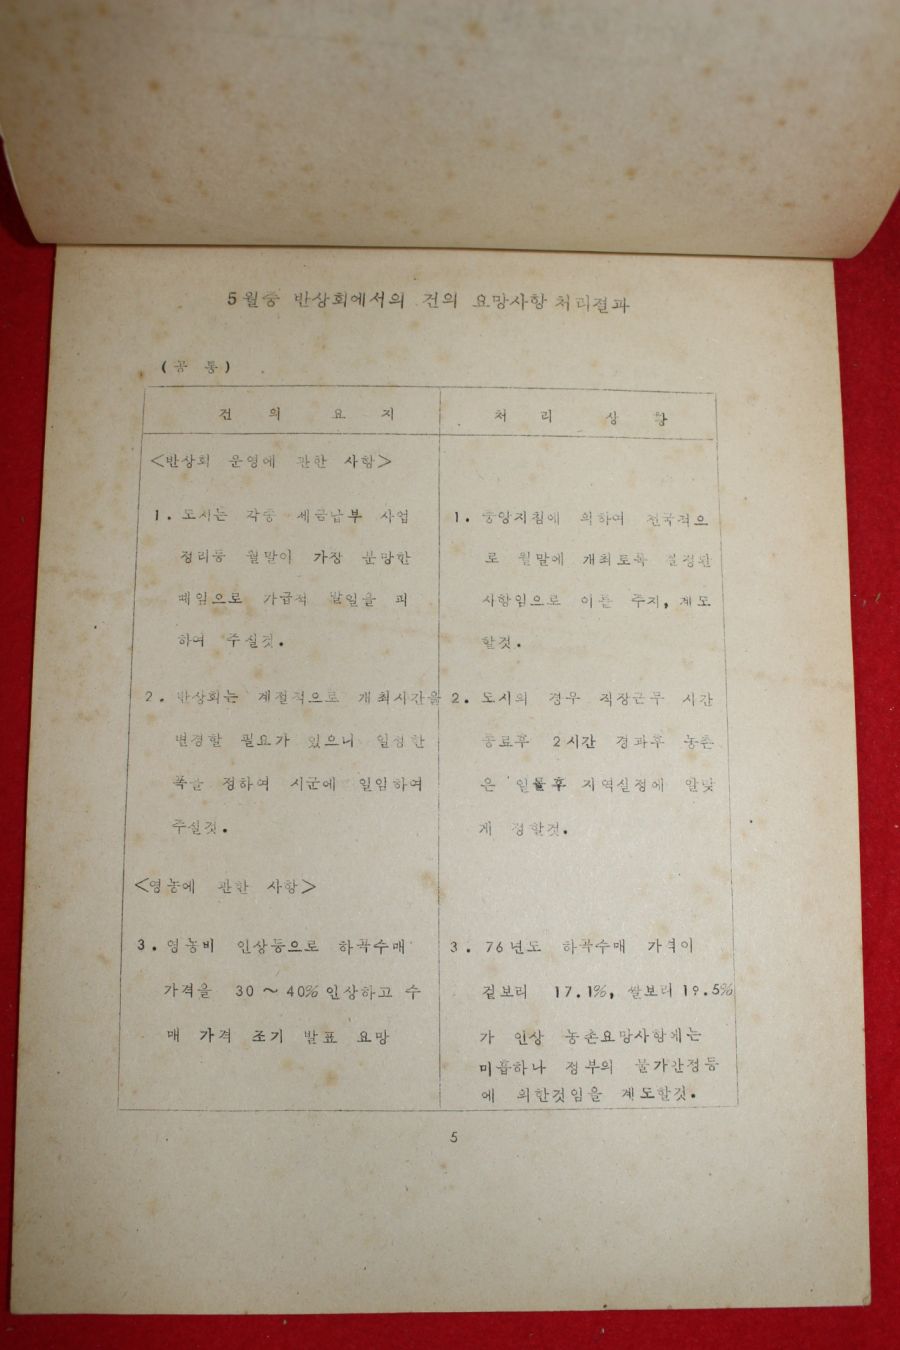 5월중 반상회에서의 건의 요망사항 처리결과
(공 통)
건 의 요 지
처 리 상 황
<반상회 운영에 관한 사항>
1. 도시는 각종 세금납부 사업
정리등 월말이 가장 분망한
때임으로 가급적 말일을 피
하여 주실것.
1. 중앙지침에 의하여 전국적으
로 월말에 개최토록 설정된
사항임으로 이를 주지, 계도
할것.
2. 반상회는 계절적으로 개최시간을
변경할 필요가 있으니 일정한
폭을 정하여 시군에 일임하여
주실것.
2. 도시의 경우 직장근무 시간
종료후 2시간 경과후 농촌
은 일몰후 지역실정에 알맞
게 정할것.
<영농에 관한 사항>
3. 영농비 인상등으로 하곡수매
가격을 30 ~ 40% 인상하고 수
매 가격 조기 발표 요망
3. 76년도 하곡수매 가격이
겉보리 17.1%, 쌀보리 19.5%
가 인상 농촌요망사항에는
미흡하나 정부의 물가안정등
에 의한것임을 계도할것.
5